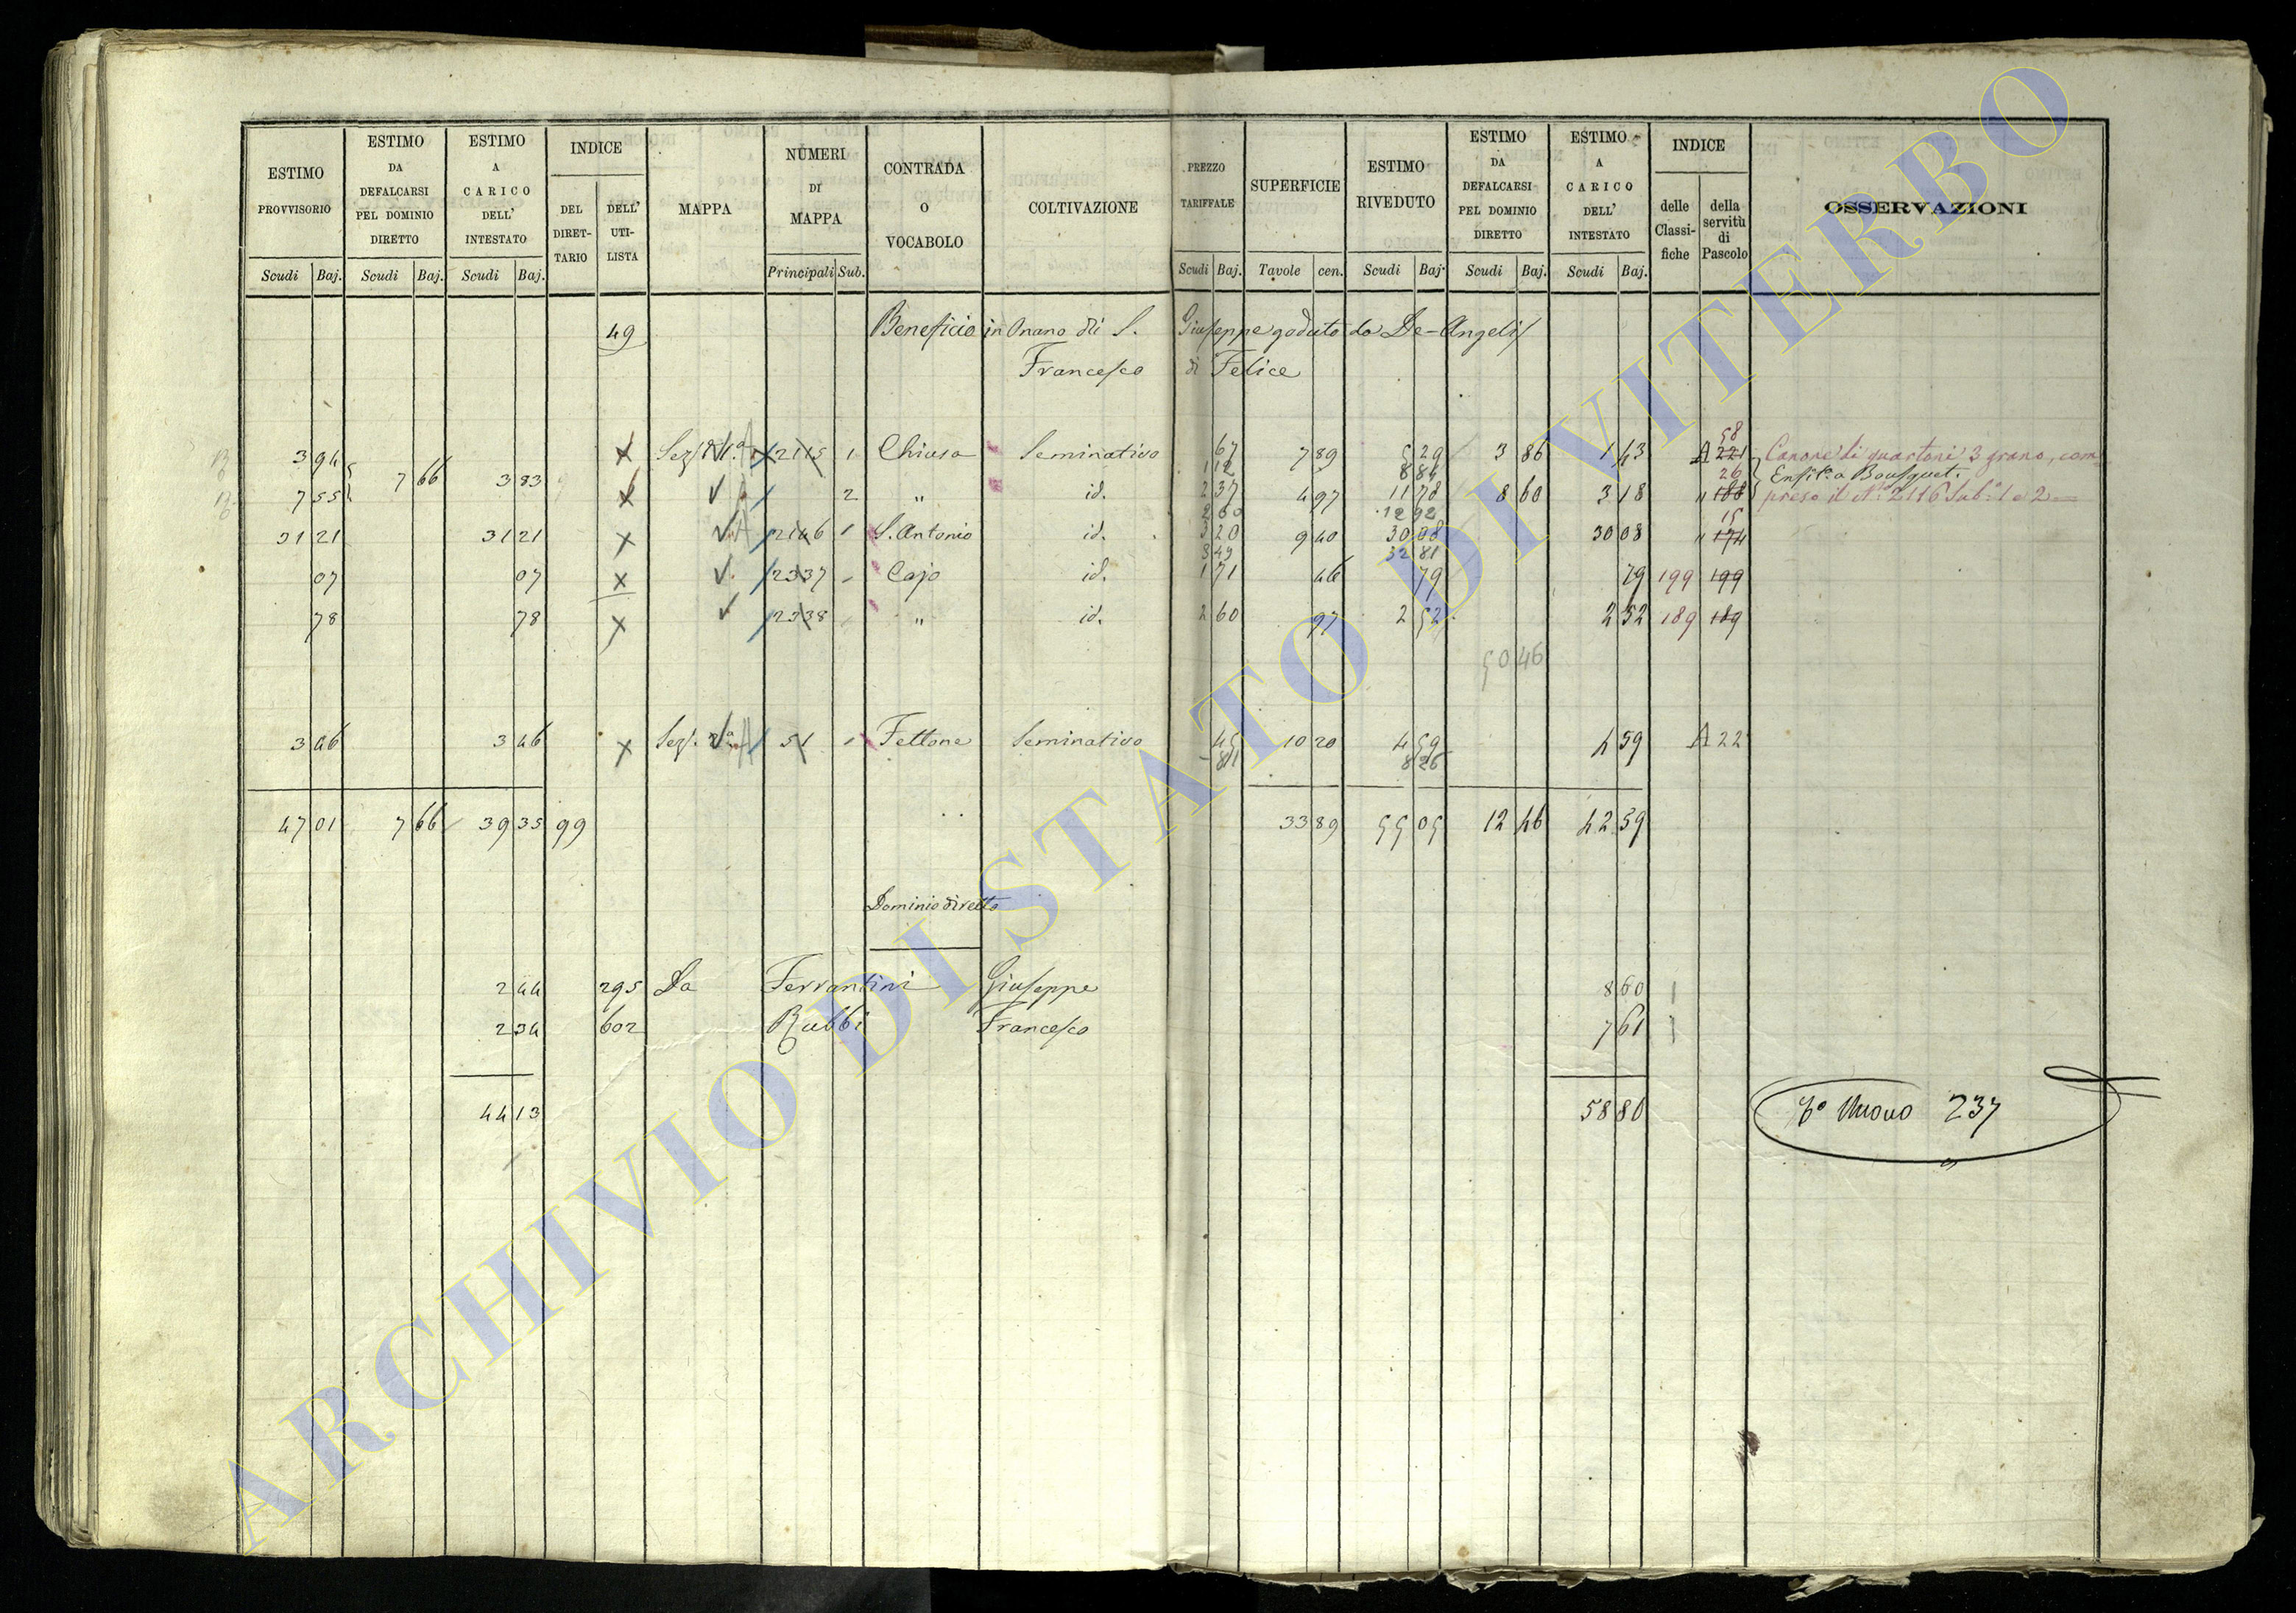 ESTIMO PROVVISORIO Scudi Baj.
ESTIMO DA DEFALCARSI PEL DOMINIO DIRETTO Scudi Baj.
ESTIMO A CARICO DELL' INTESTATO Scudi Baj.
INDICE DEL DIRET-TARIO DELL' UTI-LISTA
MAPPA
NUMERI DI MAPPA Principali Sub.
CONTRADA O VOCABOLO
COLTIVAZIONE
PREZZO TARIFFALE Scudi Baj.
SUPERFICIE Tavole cen.
ESTIMO RIVEDUTO Scudi Baj.
ESTIMO DA DEFALCARSI PEL DOMINIO DIRETTO Scudi Baj.
ESTIMO A CARICO DELL' INTESTATO Scudi Baj.
INDICE delle Classi-fiche della servitù di Pascolo
OSSERVAZIONI
49 Beneficio in Onano di S. Giuseppe goduto da De-Angelis
Francesco di Felice
58
3 94 Sez. 1 Chiusa Seminativo 67 7 89 5 29 3 86 1 43 A 221 Canone di quartoni 3 grano, com
7 66 3 83 1 12 8 84 26 Enfit. a Bousquet.
7 55 2 " id. 2 37 4 97 11 78 8 60 3 18 " 188 preso il N. 2116 Sub. 1 e 2
2 60 12 92 15
31 21 31 21 2146 S. Antonio id. 3 20 9 40 30 08 30 08 " 174
3 49 32 81
07 07 2337 Cajo id. 1 71 46 79 79 199 199
78 78 2338 " id. 2 60 97 2 52 2 52 189 189
50 46
3 46 3 46 Sez. 51 Fettone Seminativo 45 10 20 4 59 4 59 A 22
81 8 26
47 01 7 66 39 35 99 33 89 55 05 12 46 42 59
Dominio diretto
2 44 295 Da Ferrantini Giuseppe 8 60
2 34 602 Rubbi Francesco 7 61
44 13 58 80 Nuovo 237
ARCHIVIO DI STATO DI VITERBO